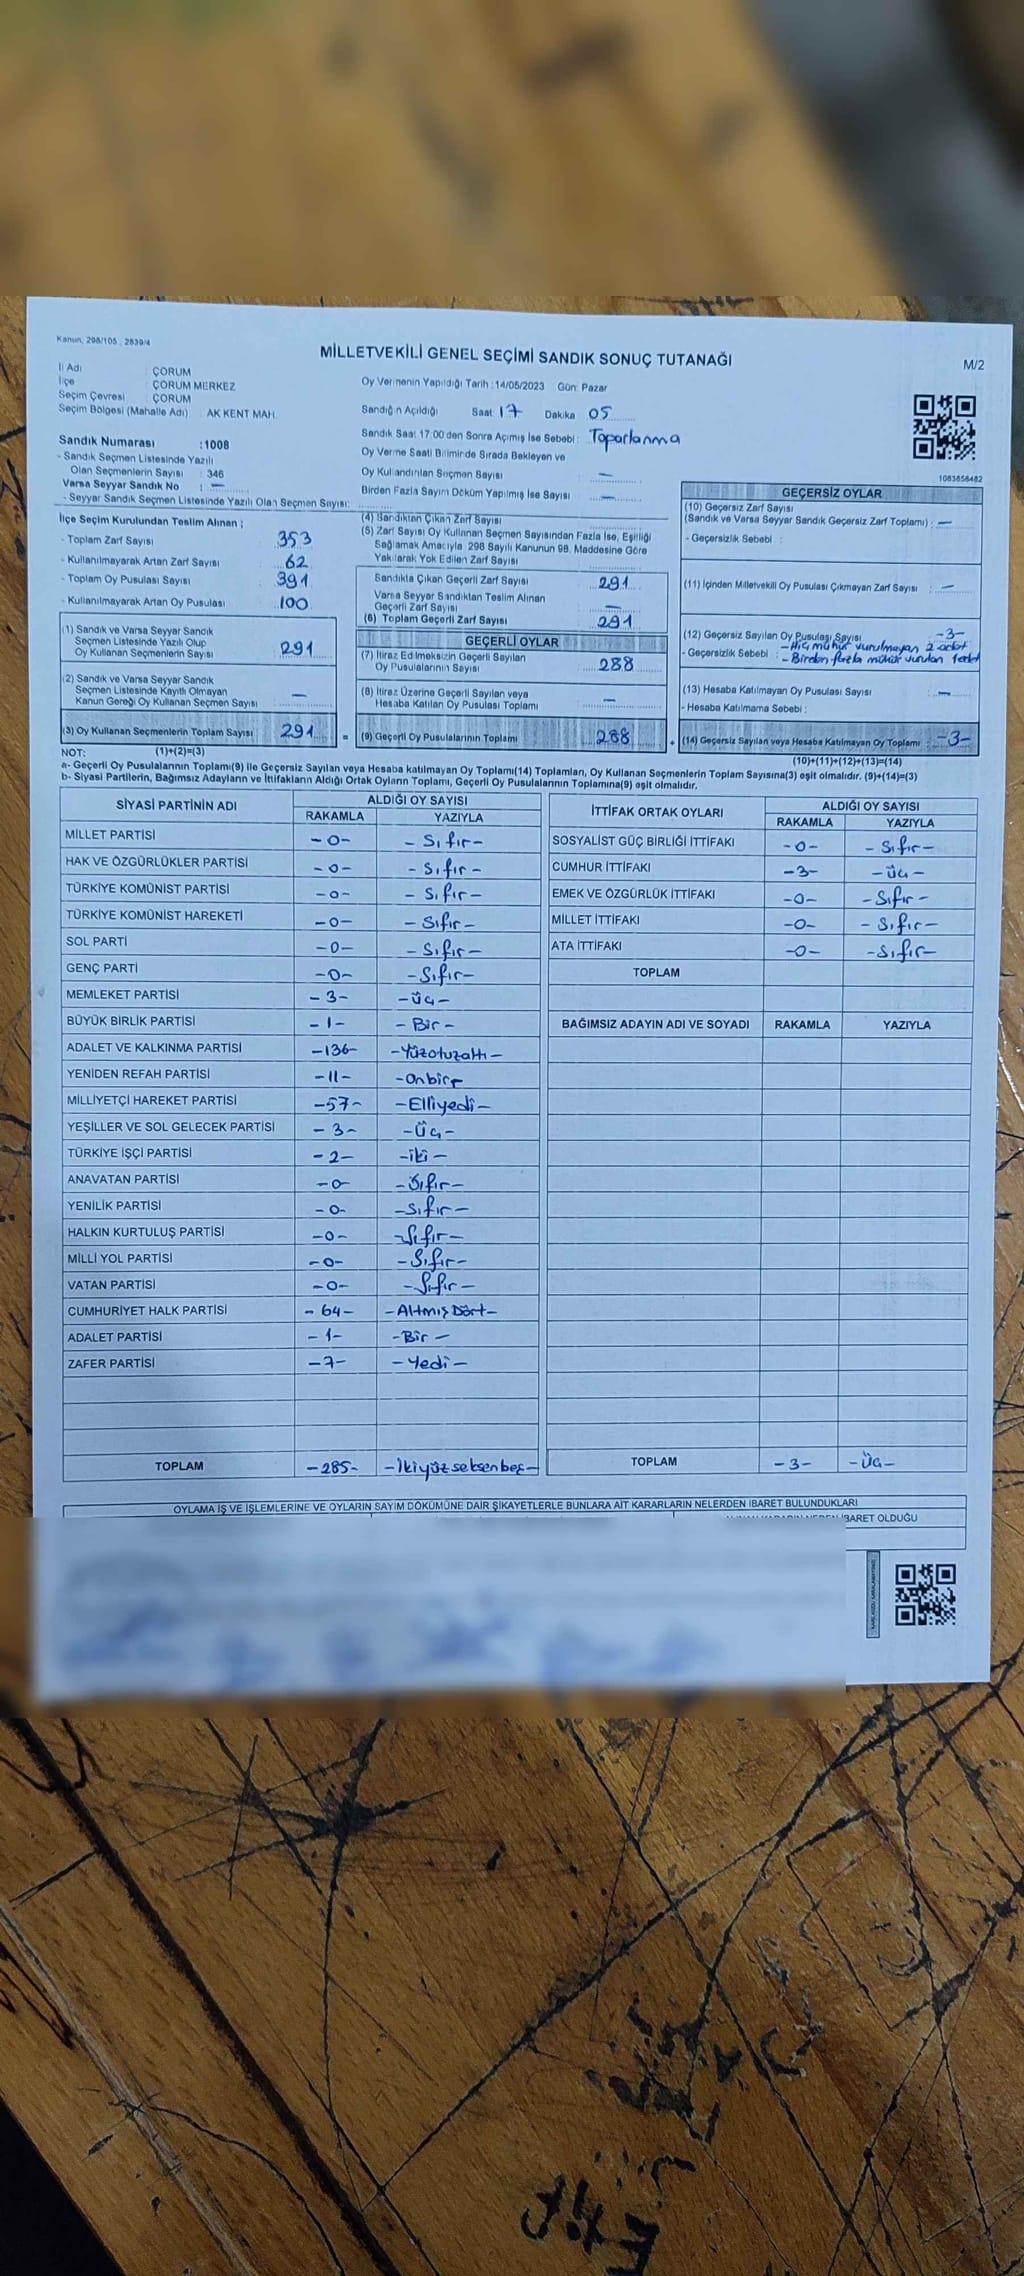 Kanun, 298/105 , 2839/4
MİLLETVEKİLİ GENEL SEÇİMİ SANDIK SONUÇ TUTANAĞI
M/2
İl Adı : ÇORUM
İlçe : ÇORUM MERKEZ
Seçim Çevresi : ÇORUM
Seçim Bölgesi (Mahalle Adı) : AK KENT MAH.
Sandık Numarası :1008
- Sandık Seçmen Listesinde Yazılı
Olan Seçmenlerin Sayısı : 346
Varsa Seyyar Sandık No : —
- Seyyar Sandık Seçmen Listesinde Yazılı Olan Seçmen Sayısı:
Oy Vermenin Yapıldığı Tarih :14/05/2023 Gün: Pazar
Sandığın Açıldığı Saat 17 Dakika 05
Sandık Saat 17:00'den Sonra Açımış İse Sebebi : Toparlanma
Oy Verme Saati Bitiminde Sırada Bekleyen ve
Oy Kullandırılan Seçmen Sayısı —
Birden Fazla Sayım Döküm Yapılmış İse Sayısı —
1083858482
İlçe Seçim Kurulundan Teslim Alınan ;
- Toplam Zarf Sayısı 353
- Kullanılmayarak Artan Zarf Sayısı 62
- Toplam Oy Pusulası Sayısı 391
- Kullanılmayarak Artan Oy Pusulası 100
(1) Sandık ve Varsa Seyyar Sandık
Seçmen Listesinde Yazılı Olup
Oy Kullanan Seçmenlerin Sayısı 291
(2) Sandık ve Varsa Seyyar Sandık
Seçmen Listesinde Kayıtlı Olmayan
Kanun Gereği Oy Kullanan Seçmen Sayısı —
(3) Oy Kullanan Seçmenlerin Toplam Sayısı 291
(1)+(2)=(3)
(4) Sandıktan Çıkan Zarf Sayısı
(5) Zarf Sayısı Oy Kullanan Seçmen Sayısından Fazla İse, Eşitliği
Sağlamak Amacıyla 298 Sayılı Kanunun 98. Maddesine Göre
Yakılarak Yok Edilen Zarf Sayısı
Sandıkta Çıkan Geçerli Zarf Sayısı 291
Varsa Seyyar Sandıktan Teslim Alınan
Geçerli Zarf Sayısı —
(6) Toplam Geçerli Zarf Sayısı 291
GEÇERLİ OYLAR
(7) İtiraz Edilmeksizin Geçerli Sayılan
Oy Pusulalarının Sayısı 288
(8) İtiraz Üzerine Geçerli Sayılan veya
Hesaba Katılan Oy Pusulası Toplamı —
= (9) Geçerli Oy Pusulalarının Toplamı 288
GEÇERSİZ OYLAR
(10) Geçersiz Zarf Sayısı
(Sandık ve Varsa Seyyar Sandık Geçersiz Zarf Toplamı) : —
- Geçersizlik Sebebi :
(11) İçinden Milletvekili Oy Pusulası Çıkmayan Zarf Sayısı : —
(12) Geçersiz Sayılan Oy Pusulası Sayısı -3-
- Geçersizlik Sebebi : -Hiç mühür vurulmayan 2 adet
-Birden fazla mühür vurulan 1 adet
(13) Hesaba Katılmayan Oy Pusulası Sayısı : —
- Hesaba Katılmama Sebebi :
+ (14) Geçersiz Sayılan veya Hesaba Katılmayan Oy Toplamı : -3-
(10)+(11)+(12)+(13)=(14)
NOT:
a- Geçerli Oy Pusulalarının Toplamı(9) ile Geçersiz Sayılan veya Hesaba katılmayan Oy Toplamı(14) Toplamları, Oy Kullanan Seçmenlerin Toplam Sayısına(3) eşit olmalıdır. (9)+(14)=(3)
b- Siyasi Partilerin, Bağımsız Adayların ve İttifakların Aldığı Ortak Oyların Toplamı, Geçerli Oy Pusulalarının Toplamına(9) eşit olmalıdır.
SİYASİ PARTİNİN ADI ALDIĞI OY SAYISI
RAKAMLA YAZIYLA
MİLLET PARTİSİ -0- -Sıfır-
HAK VE ÖZGÜRLÜKLER PARTİSİ -0- -Sıfır-
TÜRKİYE KOMÜNİST PARTİSİ -0- -Sıfır-
TÜRKİYE KOMÜNİST HAREKETİ -0- -Sıfır-
SOL PARTİ -0- -Sıfır-
GENÇ PARTİ -0- -Sıfır-
MEMLEKET PARTİSİ -3- -Üç-
BÜYÜK BİRLİK PARTİSİ -1- -Bir-
ADALET VE KALKINMA PARTİSİ -136- -Yüzotuzaltı-
YENİDEN REFAH PARTİSİ -11- -Onbir-
MİLLİYETÇİ HAREKET PARTİSİ -57- -Elliyedi-
YEŞİLLER VE SOL GELECEK PARTİSİ -3- -Üç-
TÜRKİYE İŞÇİ PARTİSİ -2- -İki-
ANAVATAN PARTİSİ -0- -Sıfır-
YENİLİK PARTİSİ -0- -Sıfır-
HALKIN KURTULUŞ PARTİSİ -0- -Sıfır-
MİLLİ YOL PARTİSİ -0- -Sıfır-
VATAN PARTİSİ -0- -Sıfır-
CUMHURİYET HALK PARTİSİ -64- -Altmış Dört-
ADALET PARTİSİ -1- -Bir-
ZAFER PARTİSİ -7- -Yedi-
TOPLAM -285- -İkiyüz seksenbeş-
İTTİFAK ORTAK OYLARI ALDIĞI OY SAYISI
RAKAMLA YAZIYLA
SOSYALİST GÜÇ BİRLİĞİ İTTİFAKI -0- -Sıfır-
CUMHUR İTTİFAKI -3- -Üç-
EMEK VE ÖZGÜRLÜK İTTİFAKI -0- -Sıfır-
MİLLET İTTİFAKI -0- -Sıfır-
ATA İTTİFAKI -0- -Sıfır-
TOPLAM
BAĞIMSIZ ADAYIN ADI VE SOYADI RAKAMLA YAZIYLA
TOPLAM -3- -Üç-
OYLAMA İŞ VE İŞLEMLERİNE VE OYLARIN SAYIM DÖKÜMÜNE DAİR ŞİKAYETLERLE BUNLARA AİT KARARLARIN NELERDEN İBARET BULUNDUKLARI
İBARET OLDUĞU